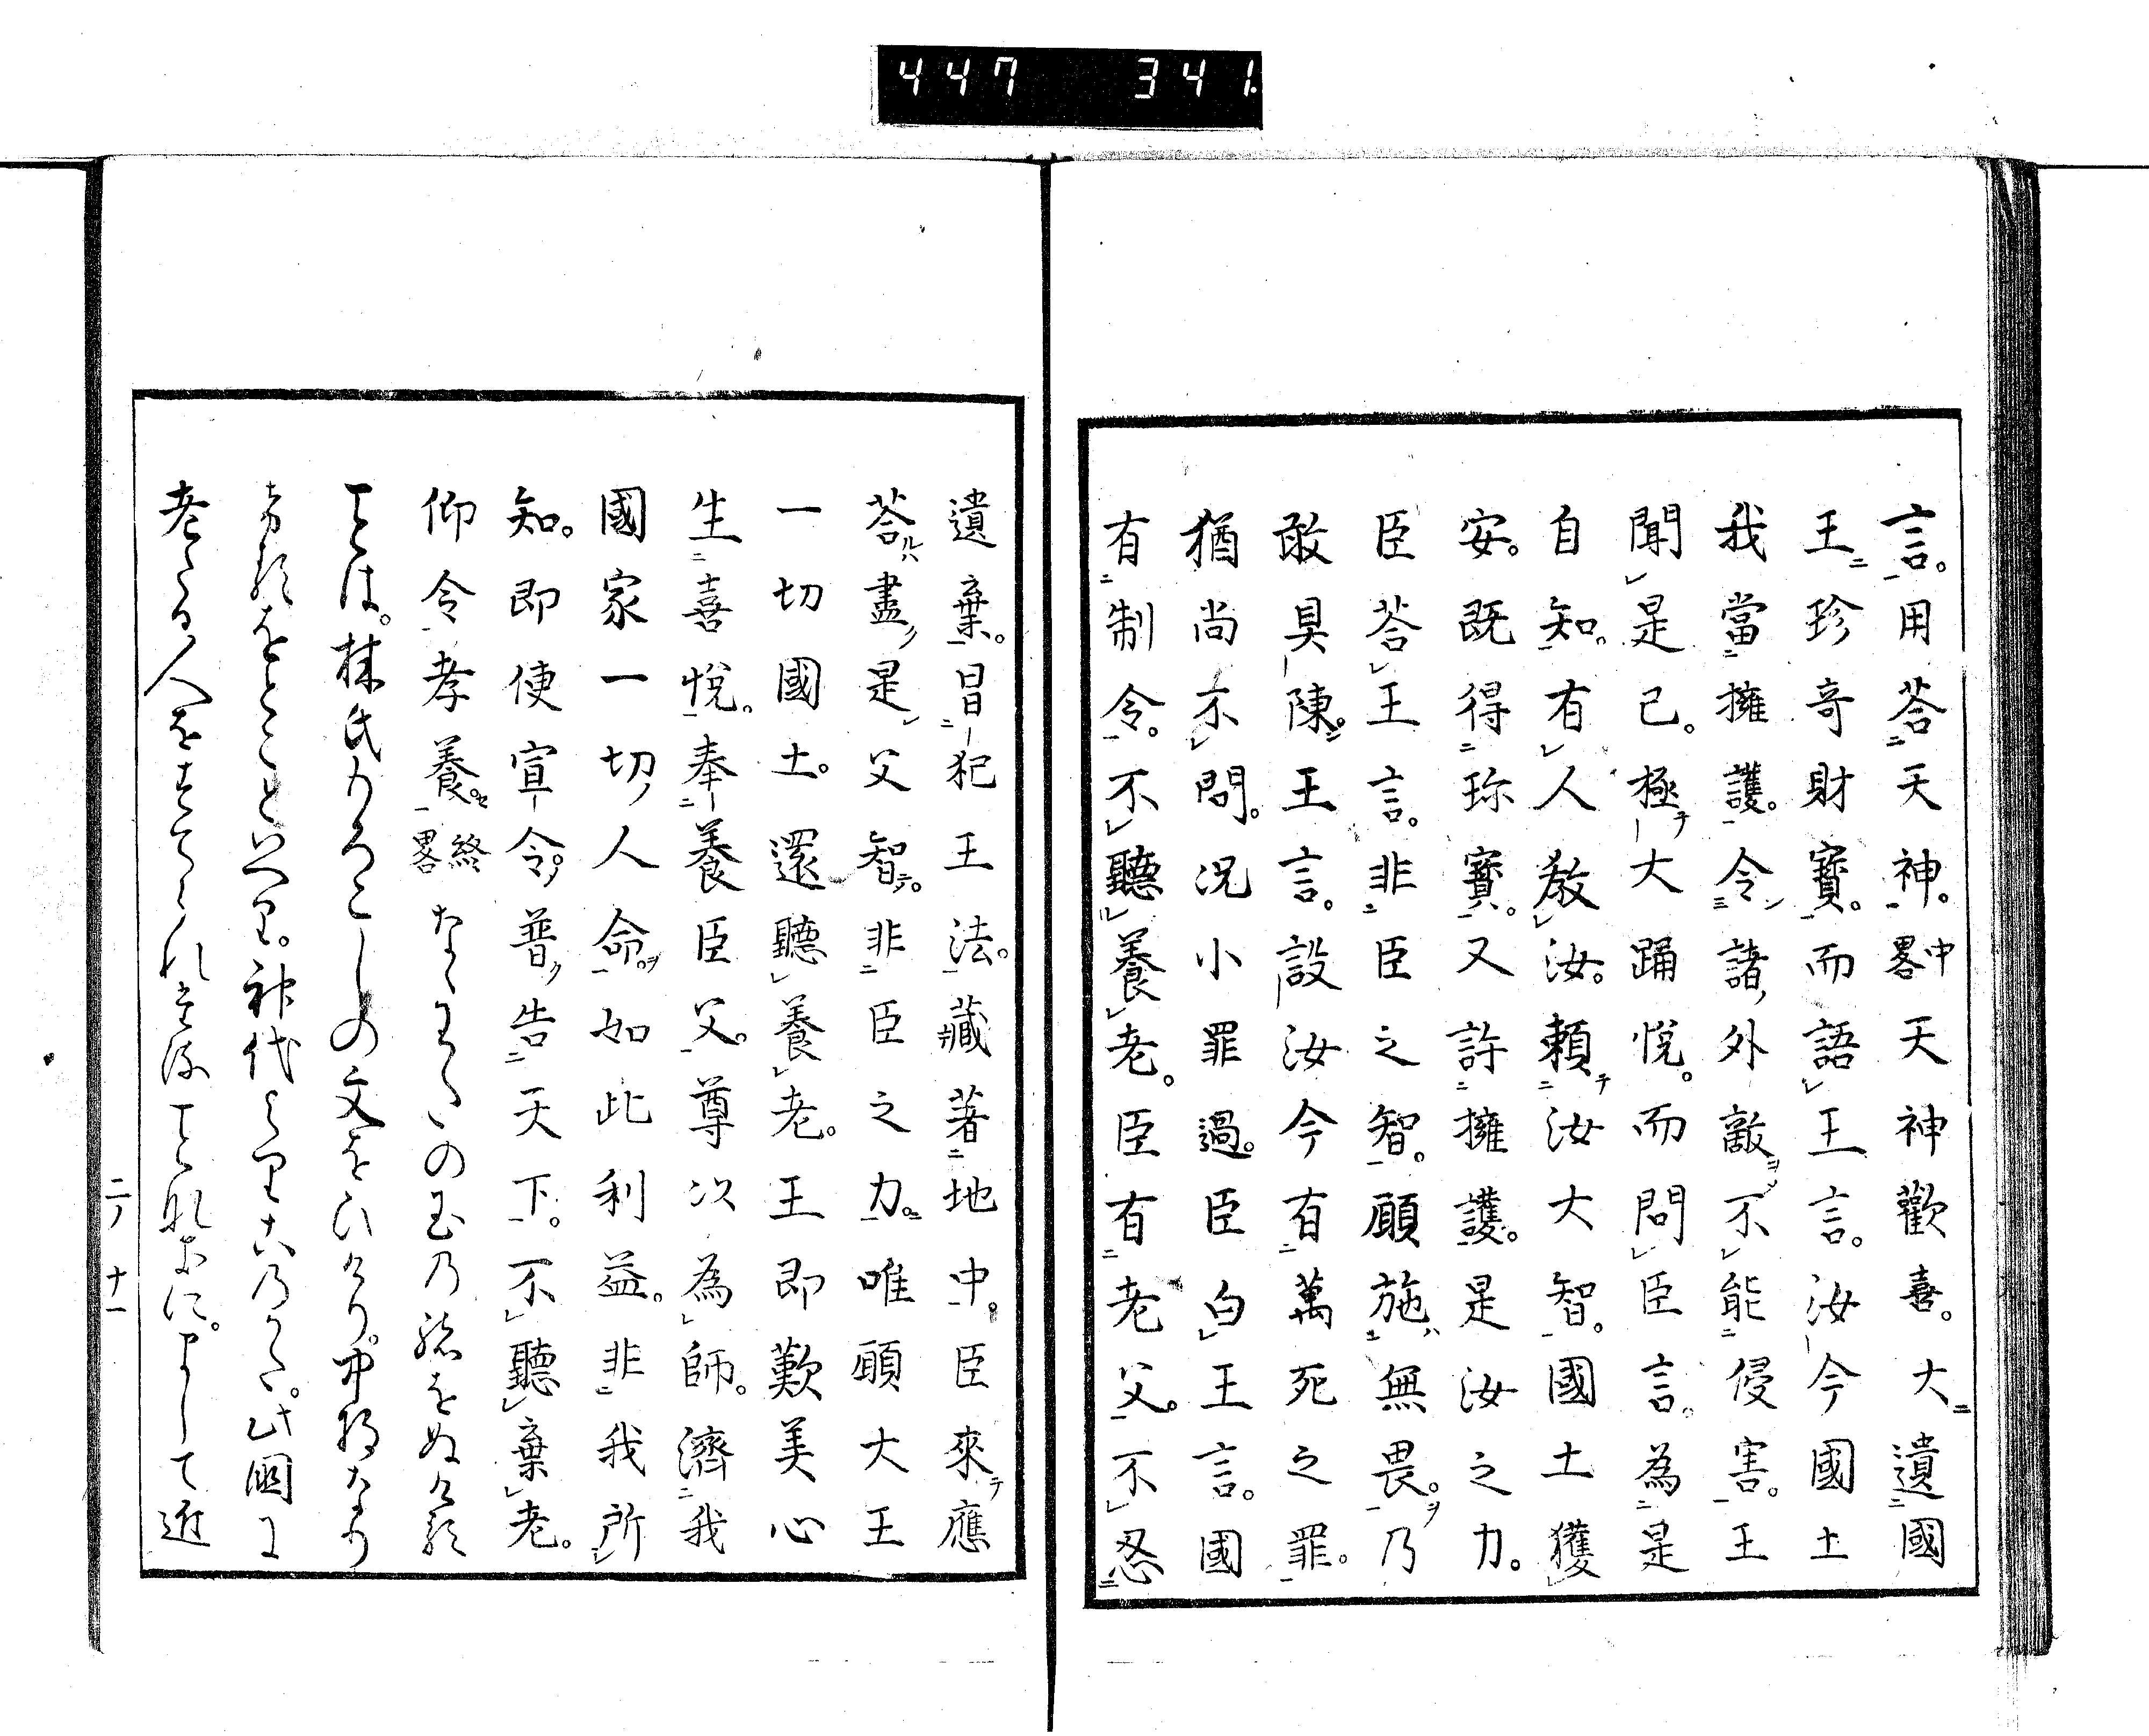 447 341
言。用荅天神。中畧天神歡喜。大遺國
王珍奇財寶。而語王言。汝今國土
我當擁護。令諸外敵不能侵害。王
聞是已。極大踊悅。而問臣言。為是
自知。有人教汝。頼汝大智。國土獲
安。既得珎寶。又許擁護。是汝之力。
臣荅王言。非臣之智。願施無畏。乃
敢具陳。王言。設汝今有萬死之罪。
猶尚不問。況小罪過。臣白王言。國
有制令。不聽養老。臣有老父。不忍
遺棄。冒犯王法。藏著地中。臣來應
荅盡是父智。非臣之力。唯願大王
一切國土。還聽養老。王即歎美心
生喜悅。奉養臣父。尊以為師。濟我
國家一切人命。如此利益。非我所
知。即使宣令。普告天下。不聽棄老。
仰令孝養。終畧なゝわたの玉乃緒をぬける
ことは。林氏もろこしの文をひけり。中將なり
神代よりこのかた。此國に
老たる人をすてられし
二ノ十一